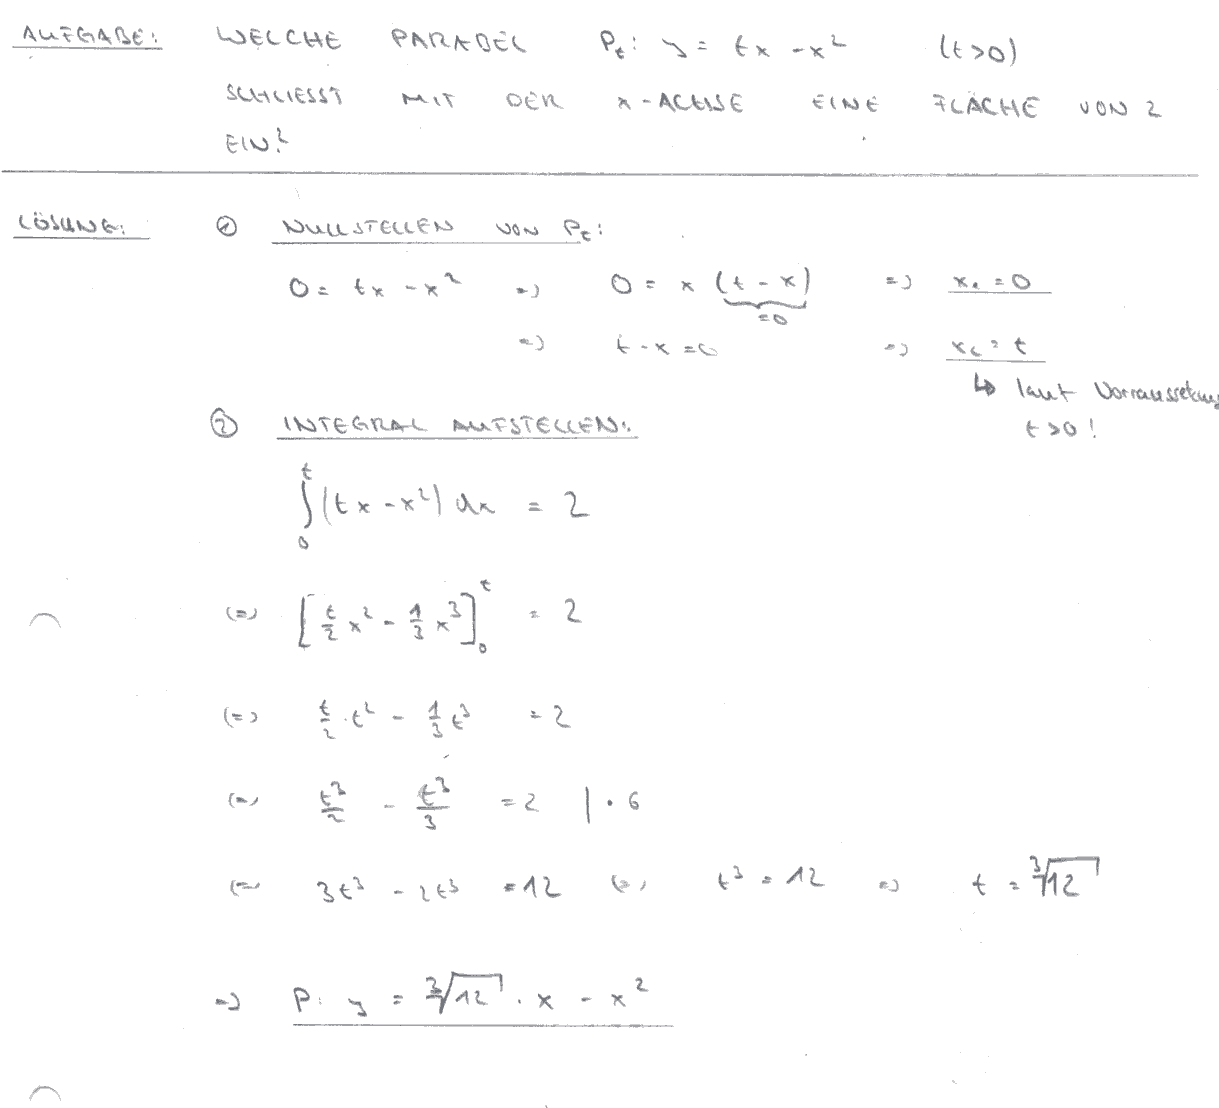 AUFGABE: WELCHE PARABEL P_t: y = tx - x² (t>0)
SCHLIESST MIT DER x-ACHSE EINE FLÄCHE VON 2
EIN?
LÖSUNG: ① NULLSTELLEN VON P_t:
0 = tx - x² => 0 = x (t - x) => x₁ = 0
=0
=> t - x = 0 => x₂ = t
↳ laut Vorraussetzung
② INTEGRAL AUFSTELLEN: t>0!
∫₀ᵗ (tx - x²) dx = 2
(=) [t/2 x² - 1/3 x³]₀ᵗ = 2
(=) t/2 · t² - 1/3 t³ = 2
(=) t³/2 - t³/3 = 2 | · 6
(=) 3t³ - 2t³ = 12 (=) t³ = 12 => t = ³√12
=> P: y = ³√12 · x - x²